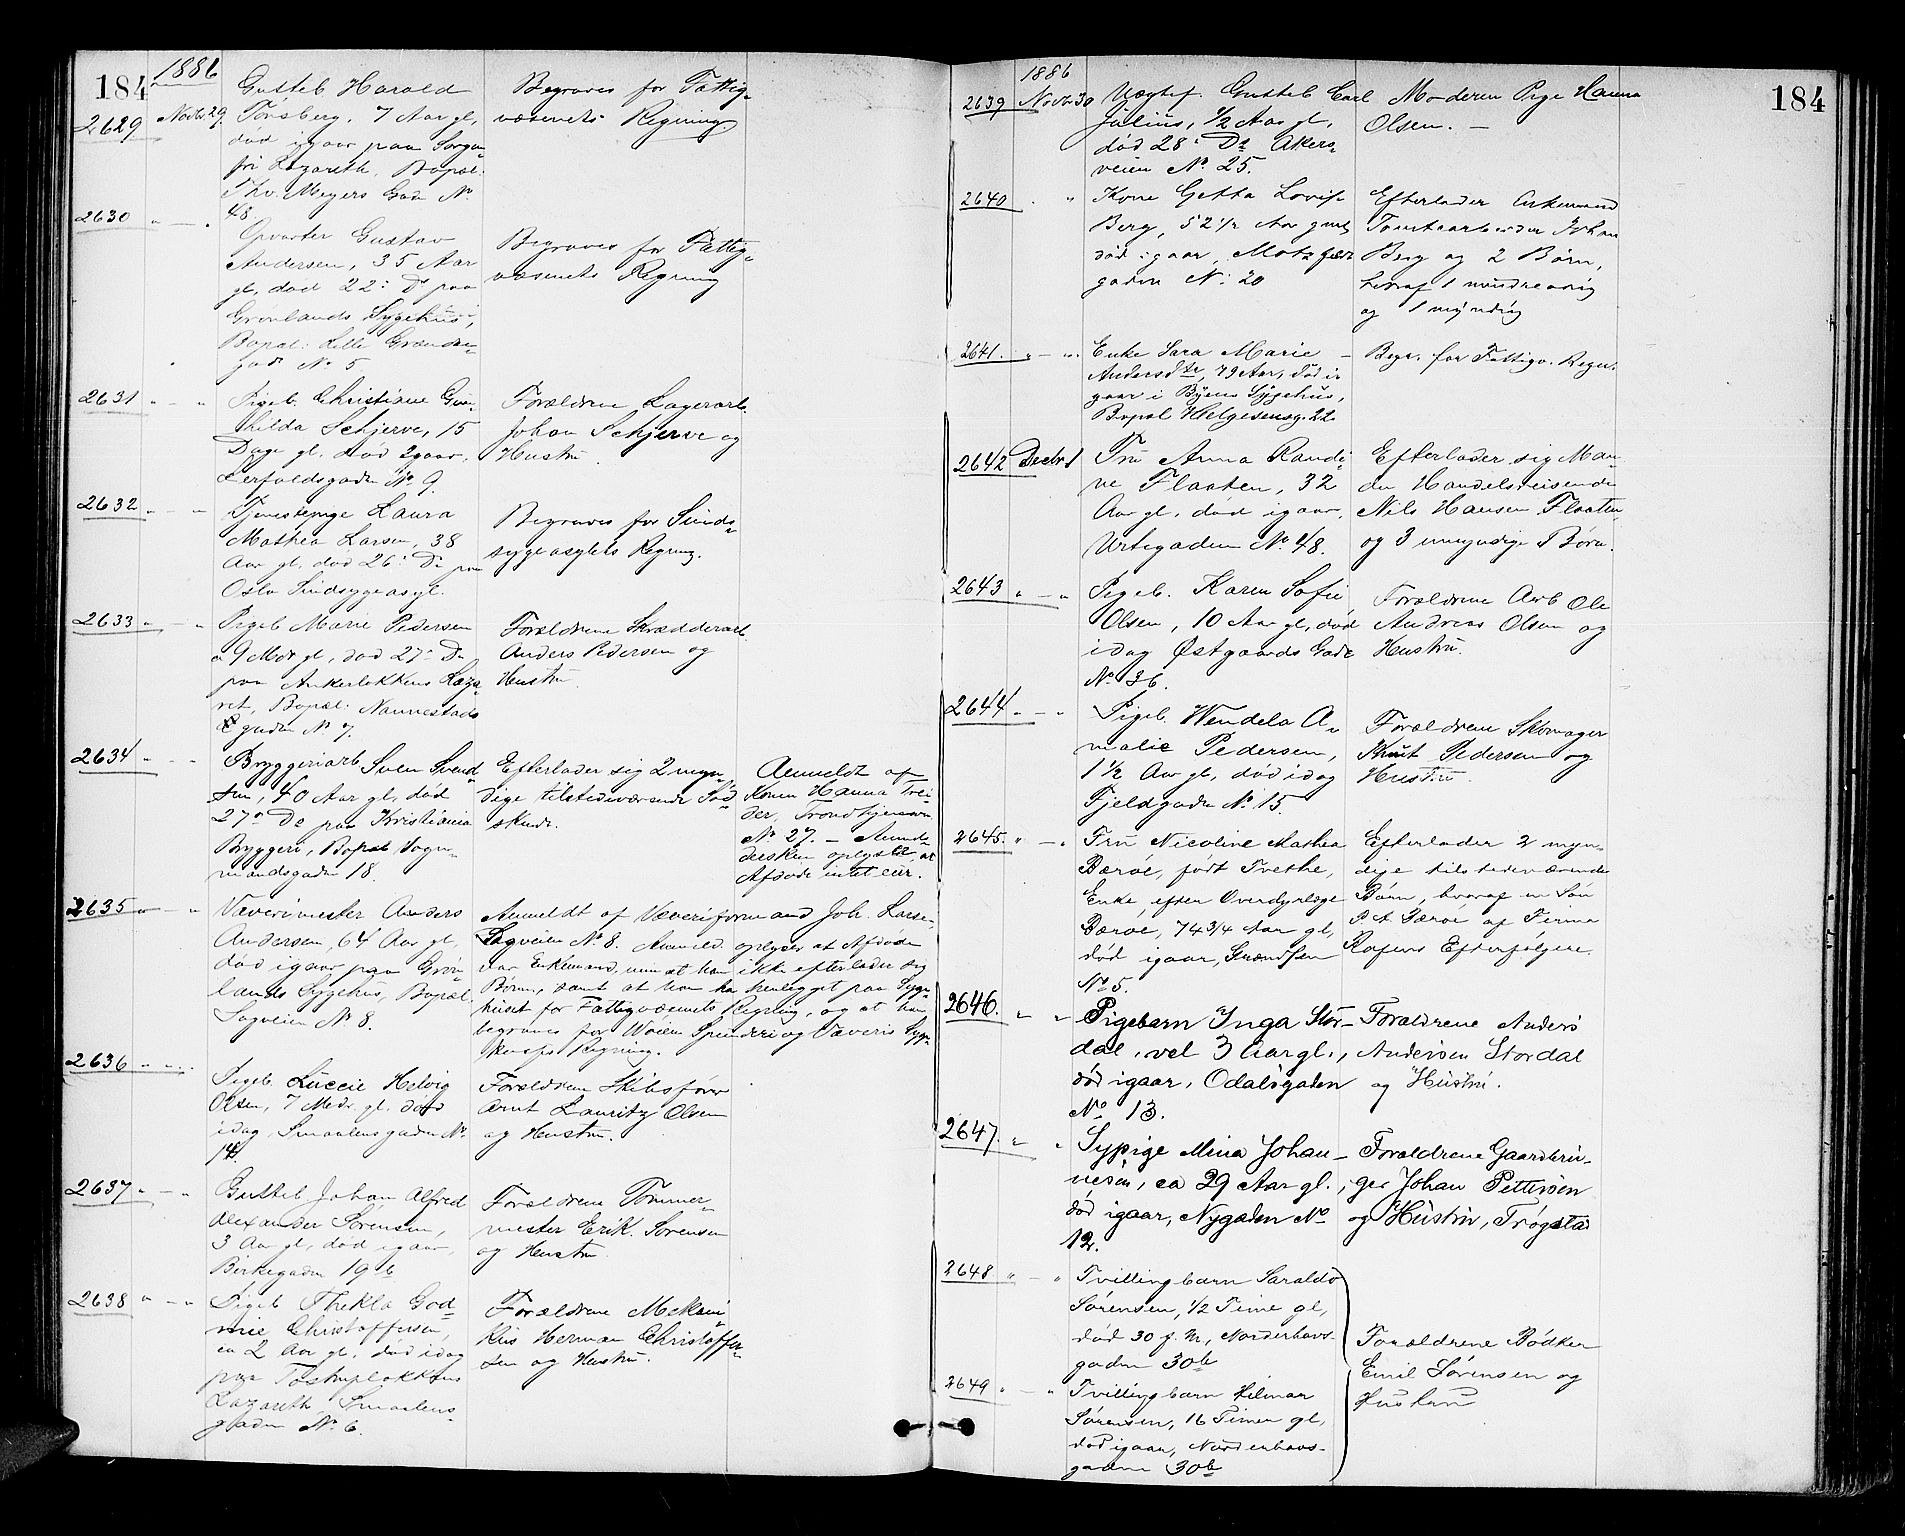 184
1886
2629
Novbr 29.
Gutteb. Harald
Forsberg, 7 Aar gl,
død igaar paa Sorgen-
fri Lazareth, Bopæl:
Thv. Meyers Gade No
48
Begraves for Fattig-
væsenets Regning.
2630 " — "
Opvarter Gustav
Andersen, 35 Aar
gl, død 22: Ds paa
Grønlands Sygehus,
Bopæl: Lille Grændse-
gade No 5
Begraves for Fattig-
væsenets Regning
2631 " — "
Pigeb. Christiane Gun-
hilda Schjerve, 15
Dage gl. død igaar,
Lerfaldsgaden No 9.
Forældrene Lagerarb.
Johan Schjerve og
Hustru.
2632 " — "
Tjenestepige Laura
Mathea Larsen, 38
Aar gl, død 26: Ds paa
Oslo Sindsygeasyl.
Begraves for Sinds-
sygeasylets Regning.
2633 " — "
Pigeb. Marie Pedersen
9 Mdr gl, død 27: Ds
paa Ankerløkkens Laza-
ret, Bopæl: Nannestads
gaden No 7.
Forældrene Skrædderarb.
Anders Pedersen og
Hustru.
2634 " — "
Bryggeriarb Sven Svend-
sen, 40 Aar gl, død
27: Ds paa Kristiania
Bryggeri, Bopæl Sogn-
mandsgaden 18.
Efterlader sig 2 myn-
dige tilstedeværende Sød-
skende.
Anmeldt af
Konen Hanna Trei-
der, Trondhjemsvn
No 27. — Anmel-
dersken oplyste, at
Afdøde intet eier.
2635 " — "
Væverimester Anders
Andersen, 64 Aar gl,
død igaar paa Grøn-
lands Sygehus, Bopæl:
Sagveien No 8.
Anmeldt af Væveriformand Joh. Larsen
Sagveien No 8. Anmeld. oplyser at Afdøde
var Enkemand, men at han ikke efterlader sig
Børn, samt at han har henligget paa Syge-
huset for Fattigvæsenets Regning, og at han
begraves for Woiens Spinderi og Væveris Syge-
kasses Regning.
2636 " — "
Pigeb. Luccie Helvig
Olsen, 7 Mdr. gl. død
idag, Smaalensgaden No
14.
Forældrene Skibsfører
Arnt Lauritz Olsen
og Hustru.
2637 " — "
Gutteb Johan Alfred
Alexander Sørensen,
3 Aar gl, død igaar,
Birkegaden 19 b
Forældrene Tømmer-
mester Erik Sørensen
og Hustru
2638 " — "
Pigeb. Thekla God-
mie Christoffersen,
ca 2 Aar gl. død idag
paa Tøshuplokkens
Lazareth, Smaalens-
gaden No 6.
Forældrene Mekani-
kus Herman Christoffer-
sen og Hustru.
184
1886
2639 Novbr 30
Uægtef. Gutteb Carl
Julius, 1/2 Aar gl,
død 28: Ds Akers-
veien No 25.
Moderen Pige Hanna
Olsen. —
2640 "
Kone Getta Lovise
Berg, 52 1/2 Aar gml
død igaar, Motzfeldt
gaden No 20
Efterlader Enkemand
Tomtearbeider Johan
Berg og 2 Børn,
heraf 1 mindreaarig
og 1 myndig
2641. " — "
Enke Sara Marie
Andersdtr, 79 Aar, død i
gaar i Byens Sygehus,
Bopæl Helgesensg. 22
Begr. for Fattigv. Regn.
2642 Decbr 1
Fru Anna Randi-
ne Flaaten, 32
Aar gl, død igaar,
Urtegaden No 48.
Efterlader sig Man-
den Handelsreisende
Nils Hansen Flaaten,
og 3 umyndige Børn.
2643 " — "
Pigeb. Karen Sofie
Olsen, 10 Aar gl, død
idag Østgaards Gade
No 36.
Forældrene Arb Ole
Andreas Olsen og
Hustru.
2644 " — "
Pigeb. Wendela A-
malie Pedersen,
1 1/2 Aar gl, død idag
Fjeldgaden No 15
Forældrene Skomager
Knut Pedersen og
Hustru.
2645. " — "
Fru Nicoline Mathea
Bærøe, født Tvethe,
Enke efter Overdyrlæge
Bærøe, 74 3/4 Aar gl,
død igaar, Grændsen
No 5.
Efterlader 2 myn-
dige tilstedeværende
Børn, hvoraf en Søn
P. A. Bærøe af Firma
Rafens Efterfølgere.
2646. " "
Pigebarn Inga Stor-
dal, vel 3 Aar gl.,
død igaar, Odalsgaden
No 13.
Forældrene Anders
Andersen Stordal
og Hustru.
2647. " "
Sypige Mina Johan-
nesen, ca 29 Aar gl.,
død igaar, Nygaden No
12.
Forældrene Gaardbru-
ger Johan Pettersen
og Hustru, Trøgstad
2648 " — "
Tvillingbarn Saraldo
Sørensen, 1/2 Time gl,
død 30 f. M, Norderhovs-
gaden 30b
2649 " — "
Tvillingbarn Hilmar
Sørensen, 16 Timer gl,
død igaar, Norderhovs-
gaden 30b
Forældrene Bødker
Emil Sørensen og
Hustru